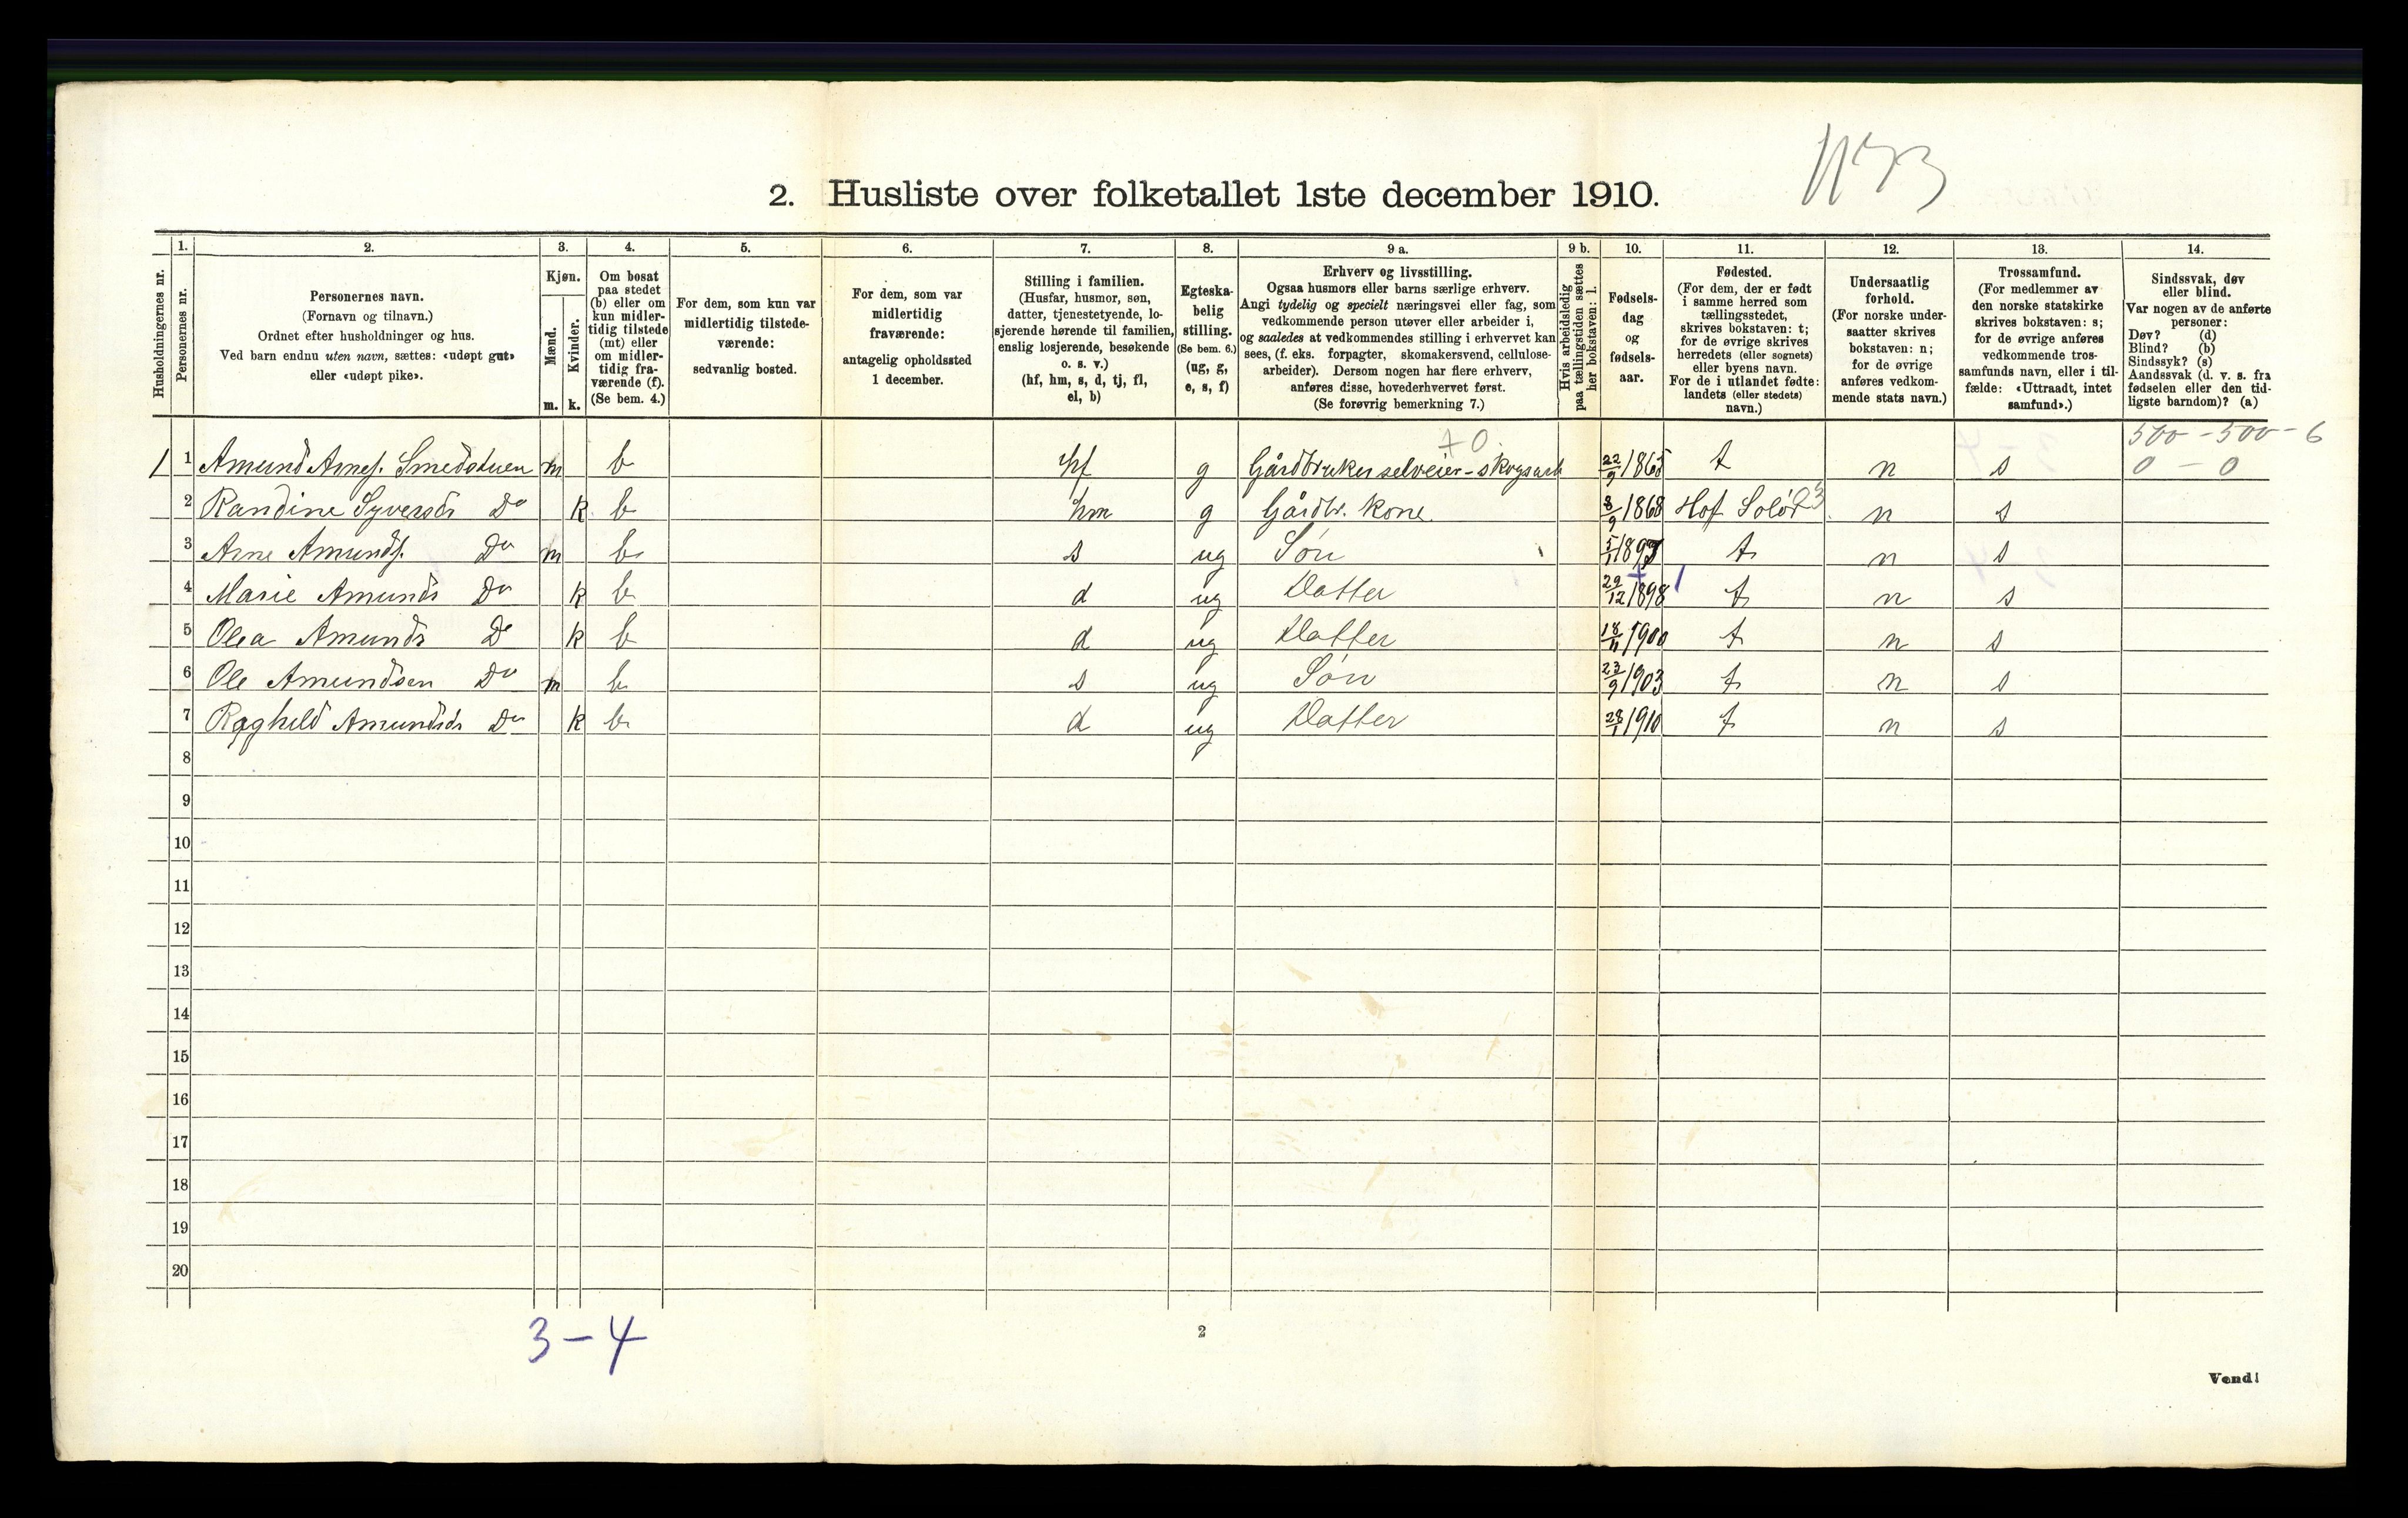 2. Husliste over folketallet 1ste december 1910.
Husholdningernes nr.
1.
Personernes nr.
2.
Personernes navn.
(Fornavn og tilnavn.)
Ordnet efter husholdninger og hus.
Ved barn endnu uten navn, sættes: «udøpt gut»
eller «udøpt pike».
3.
Kjøn.
Mænd.
Kvinder.
m. k.
4.
Om bosat
paa stedet
(b) eller om
kun midler-
tidig tilstede
(mt) eller
om midler-
tidig fra-
værende (f).
(Se bem. 4.)
5.
For dem, som kun var
midlertidig tilstede-
værende:
sedvanlig bosted.
6.
For dem, som var
midlertidig
fraværende:
antagelig opholdssted
1 december.
7.
Stilling i familien.
(Husfar, husmor, søn,
datter, tjenestetyende, lo-
sjerende hørende til familien,
enslig losjerende, besøkende
o. s. v.)
(hf, hm, s, d, tj, fl,
el, b)
8.
Egteska-
belig
stilling.
(Se bem. 6.)
(ug, g,
e, s, f)
9 a.
Erhverv og livsstilling.
Ogsaa husmors eller barns særlige erhverv.
Angi tydelig og specielt næringsvei eller fag, som
vedkommende person utøver eller arbeider i,
og saaledes at vedkommendes stilling i erhvervet kan
sees, (f. eks. forpagter, skomakersvend, cellulose-
arbeider). Dersom nogen har flere erhverv,
anføres disse, hovederhvervet først.
(Se forøvrig bemerkning 7.)
9 b.
Hvis arbeidsledig
paa tællingstiden sættes
her bokstaven: l.
10.
Fødsels-
dag
og
fødsels-
aar.
11.
Fødested.
(For dem, der er født
i samme herred som
tællingsstedet,
skrives bokstaven: t;
for de øvrige skrives
herredets (eller sognets)
eller byens navn.
For de i utlandet fødte:
landets (eller stedets)
navn.)
12.
Undersaatlig
forhold.
(For norske under-
saatter skrives
bokstaven: n;
for de øvrige
anføres vedkom-
mende stats navn.)
13.
Trossamfund.
(For medlemmer av
den norske statskirke
skrives bokstaven: s;
for de øvrige anføres
vedkommende tros-
samfunds navn, eller i til-
fælde: «Uttraadt, intet
samfund».)
14.
Sindssvak, døv
eller blind.
Var nogen av de anførte
personer:
Døv? (d)
Blind? (b)
Sindssyk? (s)
Aandssvak (d. v. s. fra
fødselen eller den tid-
ligste barndom)? (a)
500 - 500 - 6
1 1 Amund Arnes. Smedstuen m b hf g Gårdbruker selveier - skogsarb 22/9 1865 t n s 0 - 0
2 Randine Syversdr Do k b hm g Gårdbr. kone 8/9 1868 Hof Solør n s
3 Arne Amunds. Do m b s ug Søn 5/1 1893 t n s
4 Marie Amunds Do k b d ug Datter 29/12 1898 t n s
5 Olea Amunds Do k b d ug Datter 18/11 1900 t n s
6 Ole Amundsen Do m b s ug Søn 23/9 1903 t n s
7 Raghild Amundsdr Do k b d ug Datter 28/1 1910 t n s
8
9
10
11
12
13
14
15
16
17
18
19
20
3-4
2
Vend!